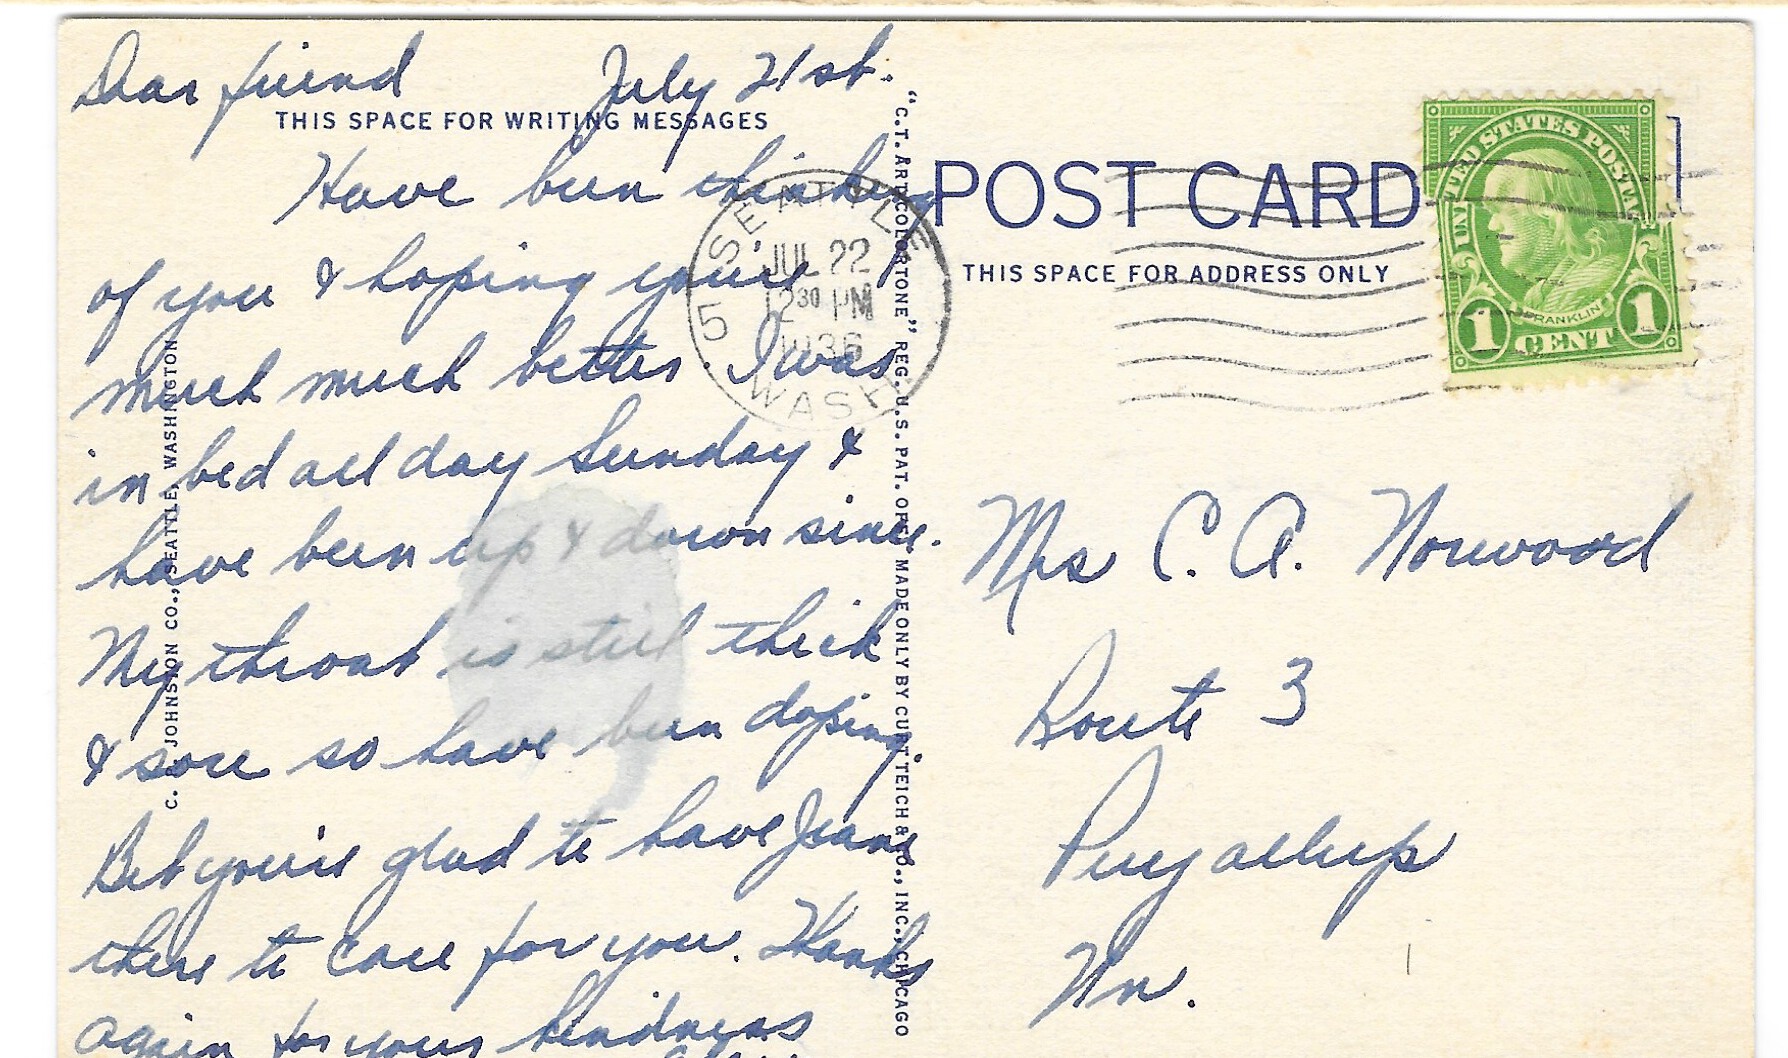 Dear friend July 21st.
THIS SPACE FOR WRITING MESSAGES
Have been thinking
of you & hoping you're
much much better. I was
in bed all day Sunday &
have been up & down since.
My throat is still thick
& sore so have been doping.
Bet you're glad to have Jeane
there to care for you. Thanks
again for your kindness
C. JOHNSTON CO., SEATTLE, WASHINGTON
SEATTLE
JUL 22
12 30 PM
1936
5
WASH.
"C.T. ART-COLORTONE" REG. U.S. PAT. OFF. MADE ONLY BY CURT TEICH & CO., INC., CHICAGO
POST CARD
THIS SPACE FOR ADDRESS ONLY
UNITED STATES POSTAGE
FRANKLIN
1 CENT 1
Mrs C. A. Norwood
Route 3
Puyallup
Wn.